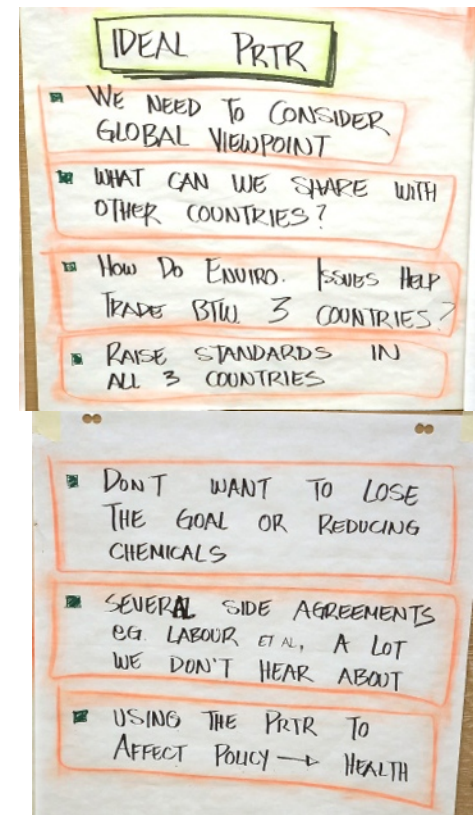 IDEAL PRTR
WE NEED TO CONSIDER
GLOBAL VIEWPOINT
WHAT CAN WE SHARE WITH
OTHER COUNTRIES?
HOW DO ENVIRO. ISSUES HELP
TRADE BTW. 3 COUNTRIES?
RAISE STANDARDS IN
ALL 3 COUNTRIES
DON'T WANT TO LOSE
THE GOAL OR REDUCING
CHEMICALS
SEVERAL SIDE AGREEMENTS
eG. LABOUR ET AL, A LOT
WE DON'T HEAR ABOUT
USING THE PRTR TO
AFFECT POLICY → HEALTH